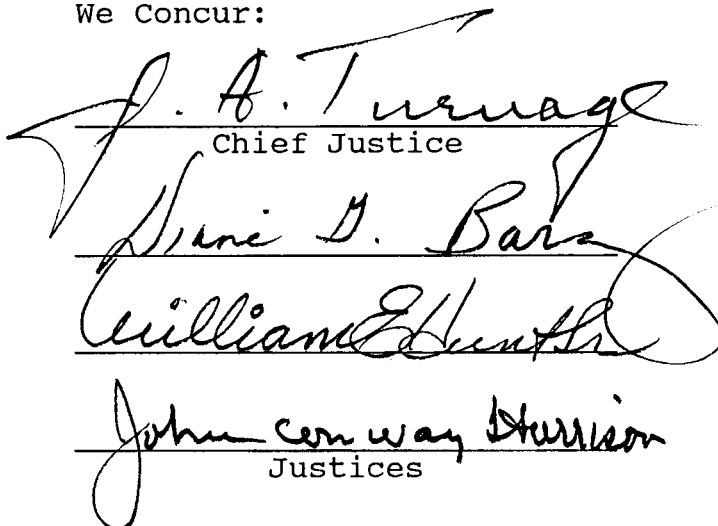 We Concur:
J. A. Turnage
Chief Justice
Diane G. Barz
William E Hunt Sr
John Conway Harrison
Justices